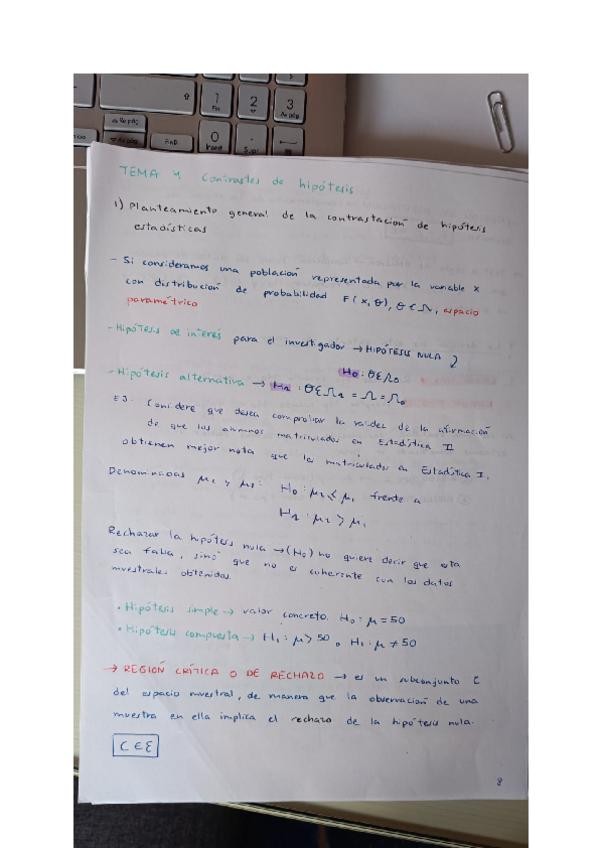 1 Fin
2
3 AvPág
RePág
AvPág
Fin
0 Insert
. Supr
TEMA 4 Contrastes de hipótesis
1) Planteamiento general de la contrastación de hipótesis
estadísticas
- Si consideramos una población representada por la variable X
con distribución de probabilidad F(x, θ), θ ∈ Ω, espacio
paramétrico
- Hipótesis de interés para el investigador → HIPÓTESIS NULA
H₀ : θ ∈ Ω₀
- Hipótesis alternativa → H₁ : θ ∈ Ω₁ = Ω = Ω₀
EJ. Considere que desea comprobar la validez de la afirmación
de que los alumnos matriculados en Estadística II
obtienen mejor nota que los matriculados en Estadística I.
Denominamos μ₁ y μ₂: H₀ : μ₂ ≤ μ₁ frente a
H₁ : μ₂ > μ₁
Rechazar la hipótesis nula → (H₀) no quiere decir que esta
sea falsa, sino que no es coherente con los datos
muestrales obtenidos.
• Hipótesis simple → valor concreto. H₀ : μ = 50
• Hipótesis compuesta → H₁ : μ > 50 o H₁ : μ ≠ 50
→ REGIÓN CRÍTICA O DE RECHAZO → es un subconjunto C
del espacio muestral, de manera que la observación de una
muestra en ella implica el rechazo de la hipótesis nula.
C ∈ E
8